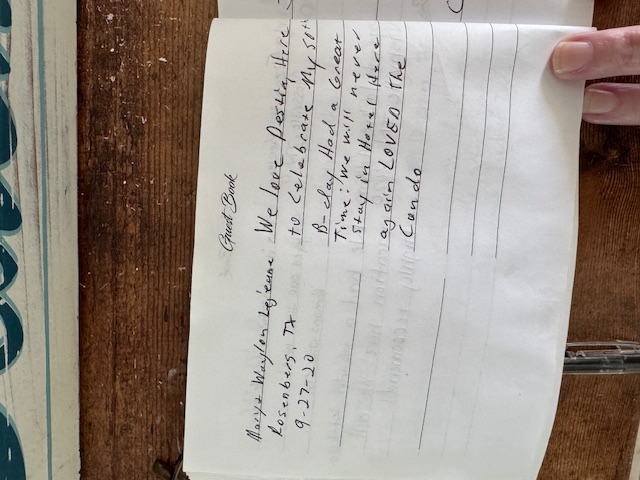 Guest Book
Marya Waylon Lejeune
Rosenberg, TX
9-27-20
We love Destin Here
to Celebrate My 50th
B-day Had a Great
Time! We will never
stay in Hotel Here
again LOVED The
Condo